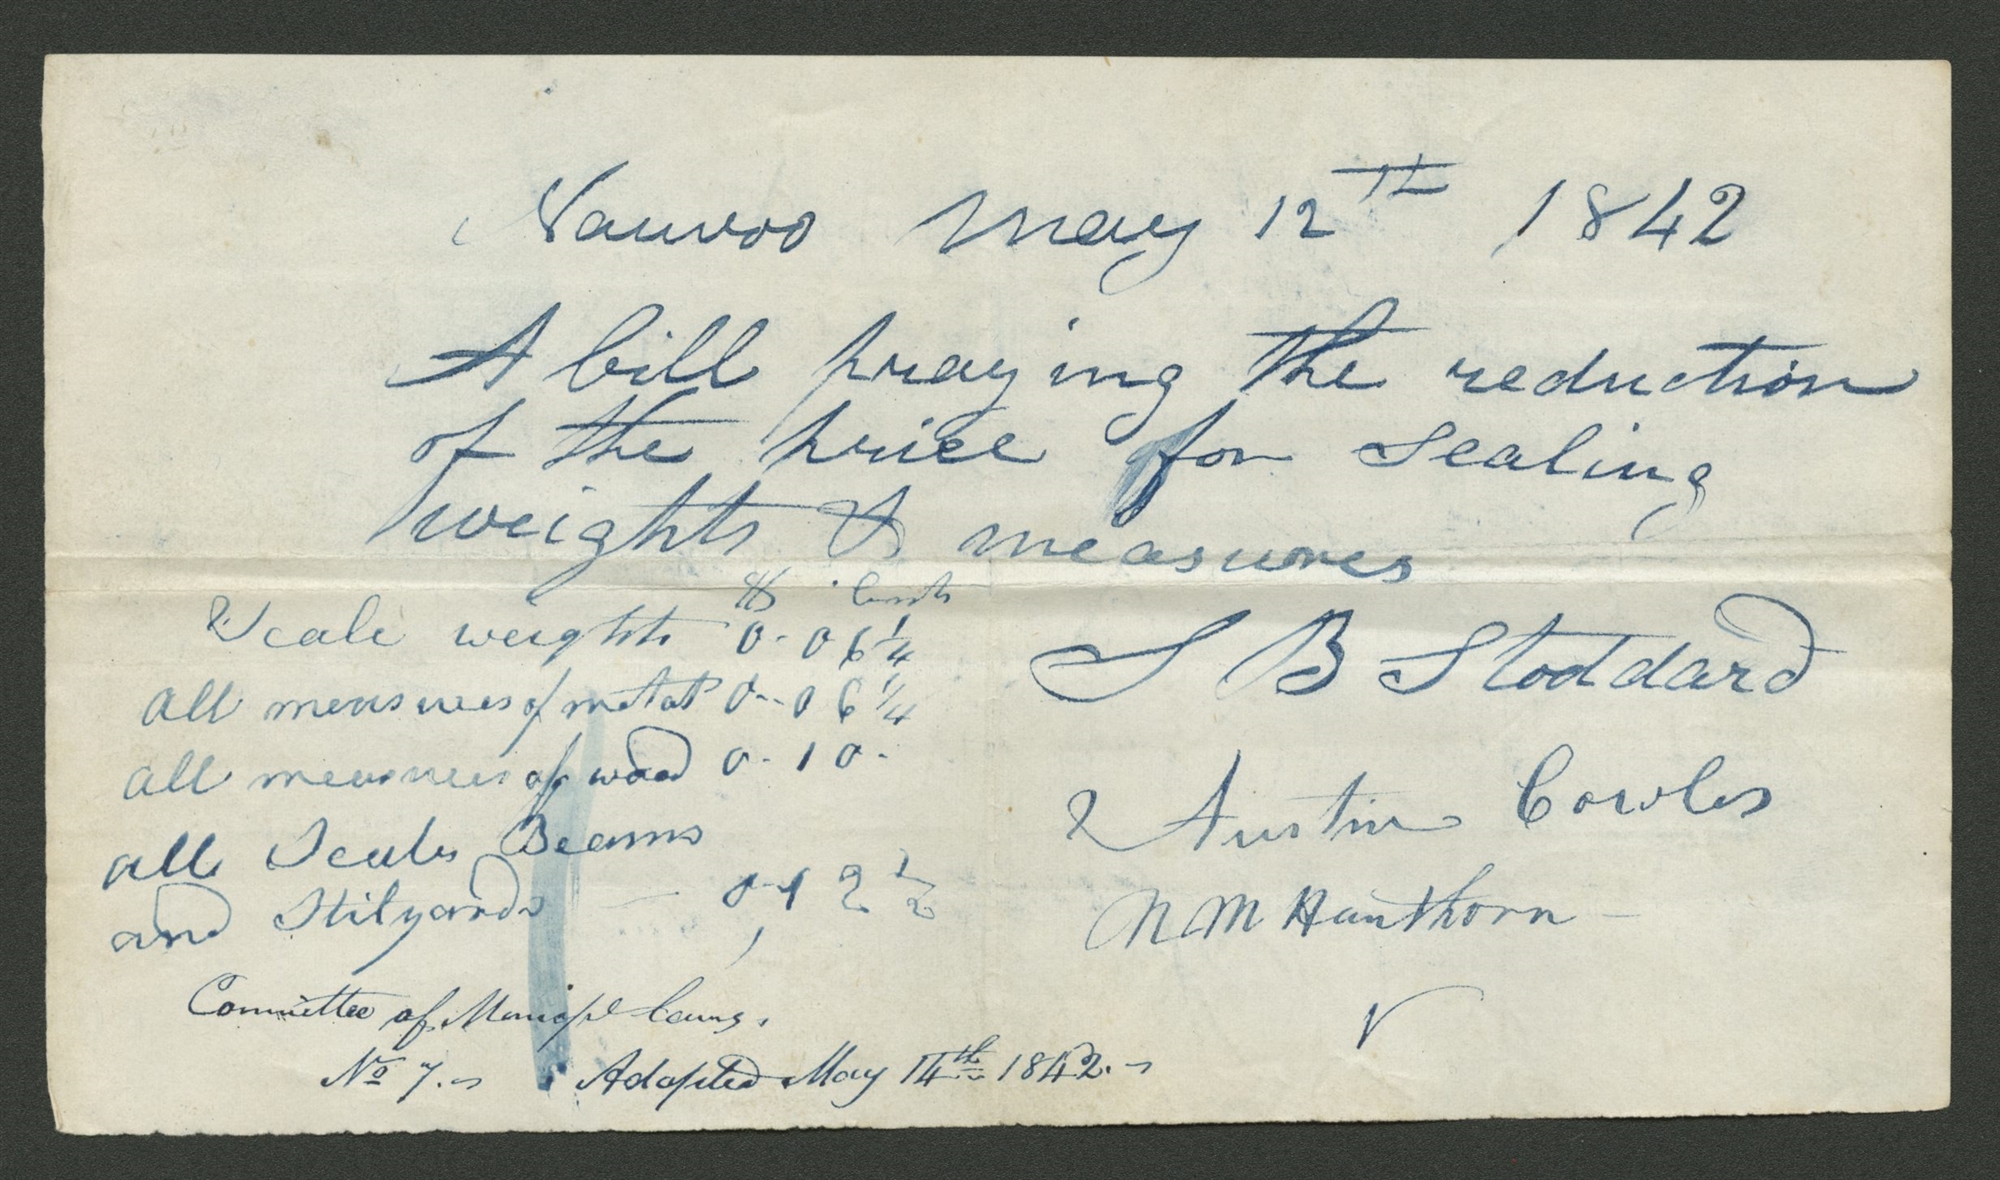 Nauvoo May 12th 1842
A bill praying the reduction
of the price for Sealing
weights & measures
$ Cents
Scale weights 0-06 1/4
all measures of metal 0-06 1/4
all measures of wood 0-10-
all Scale Beams
and Stilyards — 0-12 1/2
S B Stoddard
Austin Cowles
N M Hawthorn —
Committee of Municipl Counc.
No 7. Adopted May 14th 1842.